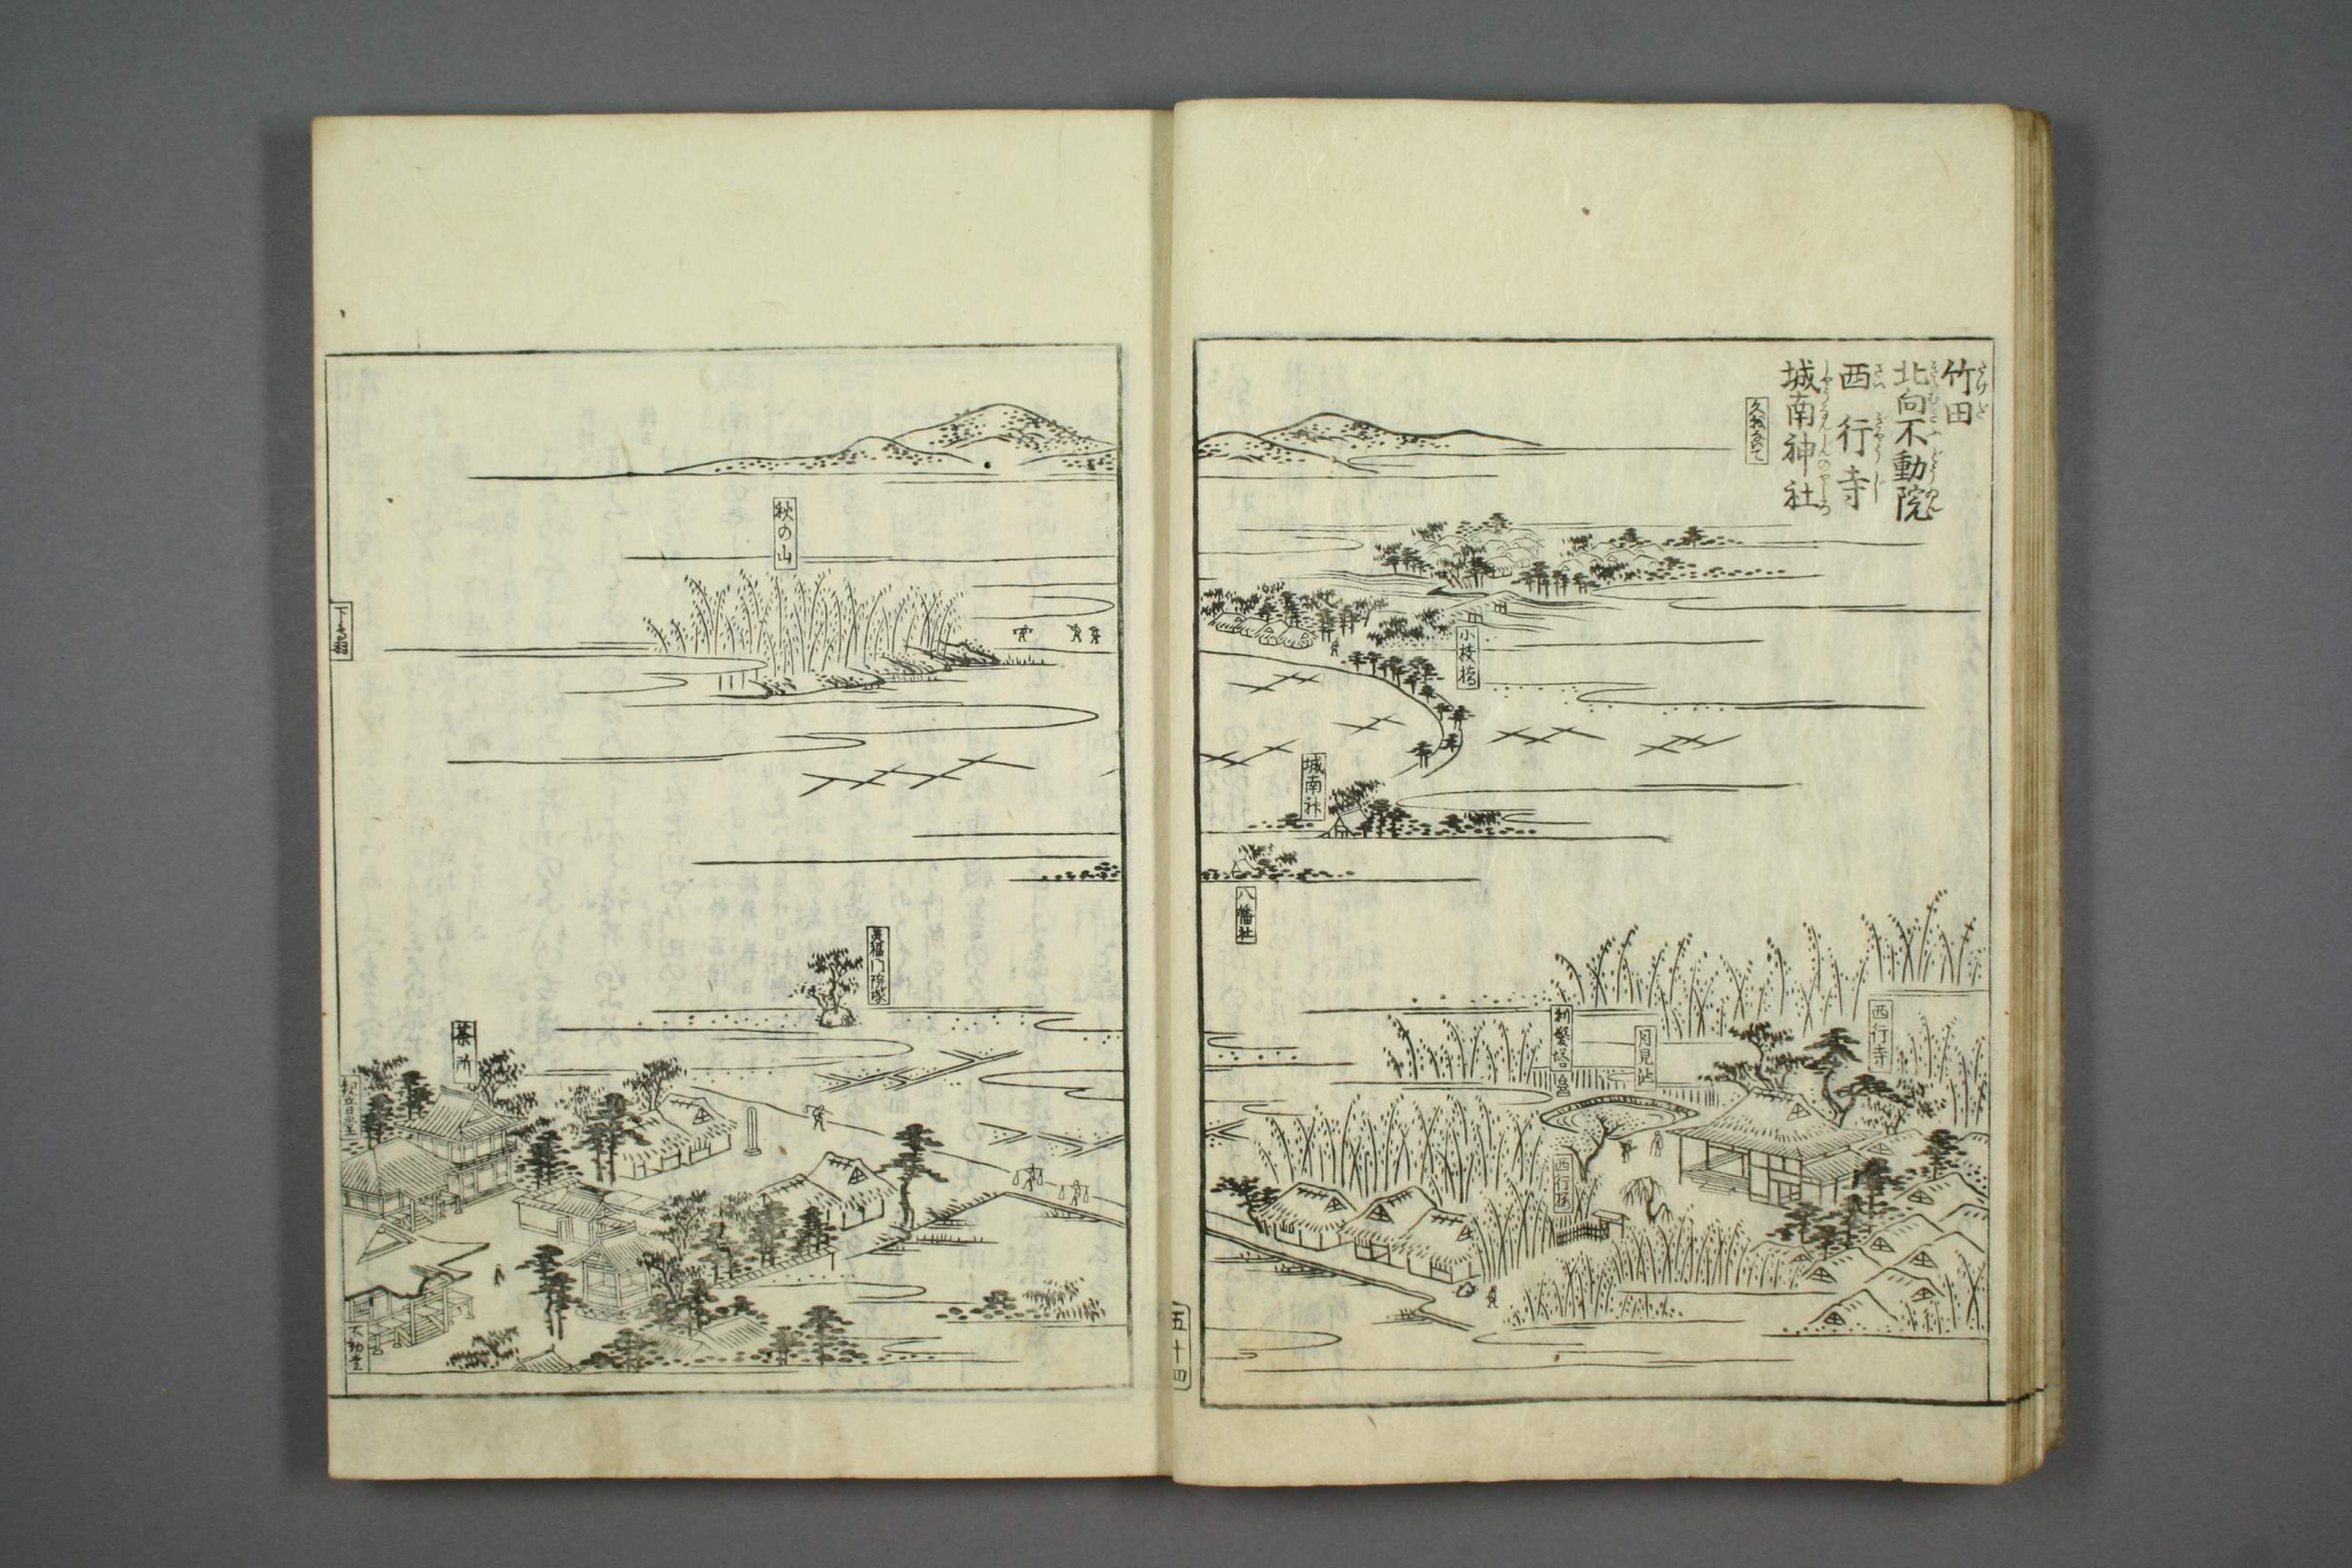 竹田
北向不動院
西行寺
城南神社
小枝橋
城南神
八幡社
西行寺
月見池
利繁塔
西行塚
五十四
秋の山
下鳥羽
美福門院塚
茶所
観音堂
不動堂